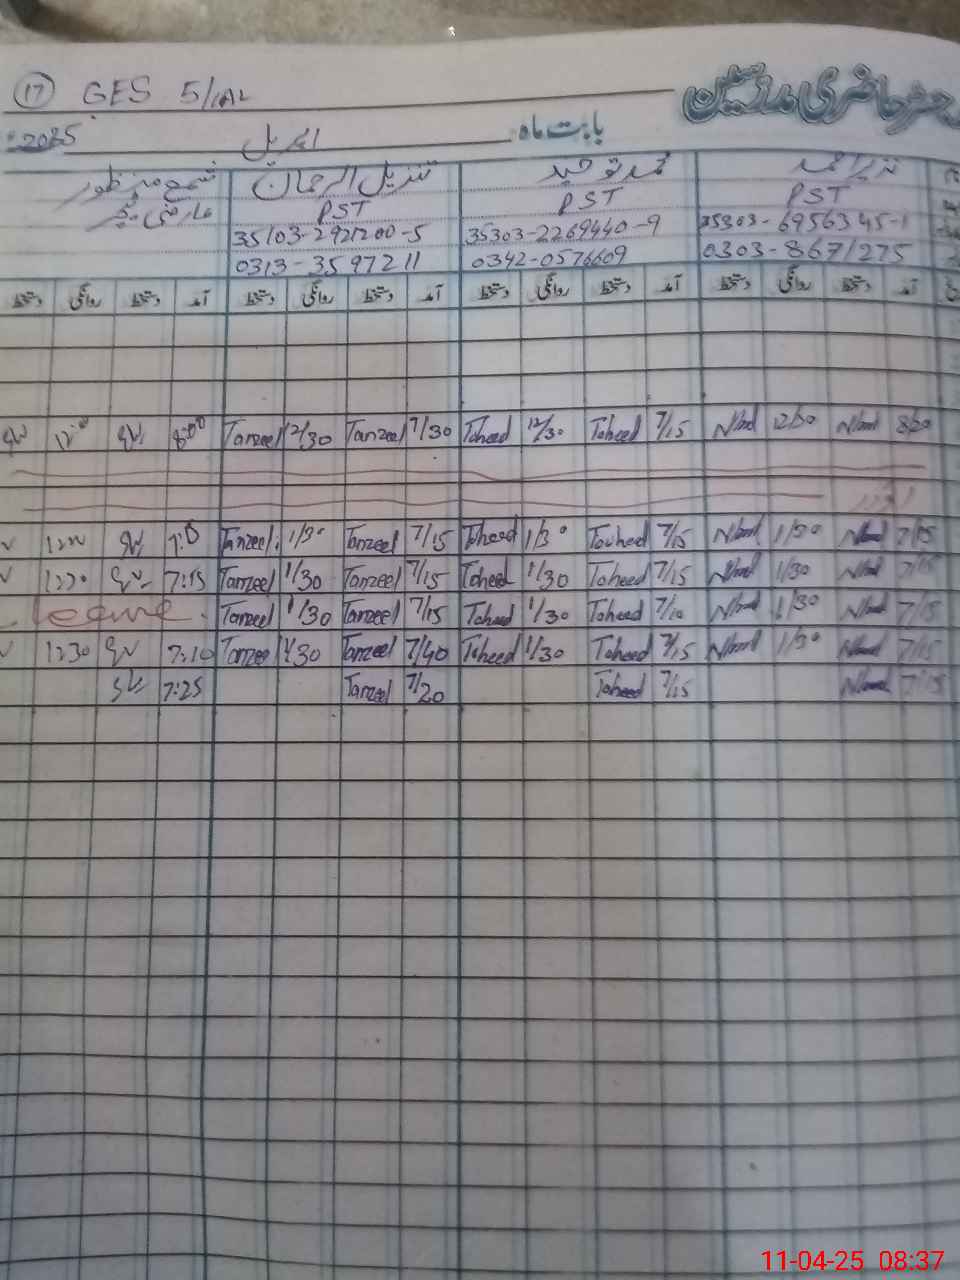 17 GES 5/1AL رجسٹر حاضری مدرسین
2025 اپریل بابت ماہ
نذیر احمد محمد توحید تنزیل الرحمان شمع منظور
PST PST PST عارضی ٹیچر
35303-6956345-1 35303-2269440-9 35103-2921200-5
0303-8671275 0342-0576609 0313-3597211
آمد دستخط روانگی دستخط آمد دستخط روانگی دستخط آمد دستخط روانگی دستخط آمد دستخط روانگی دستخط
12:00 8:00 Tanzeel 12/30 Tanzeel 7/30 Toheed 12/30 Toheed 7/15 12/30 8/00
اتوار
Tanzeel 1/30 Tanzeel 7/15 Toheed 1/30 Touheed 7/15 1/30 7/15
7:15 Tanzeel 1/30 Tanzeel 7/15 Toheed 1/30 Toheed 7/15 1/30 7/15
Leave Tanzeel 1/30 Tanzeel 7/15 Toheed 1/30 Toheed 7/10 1/30 7/15
1230 7:10 Tanzeel 1/30 Tanzeel 7/40 Toheed 1/30 Toheed 7/15 1/30 7/15
7:25 Tanzeel 7/20 Toheed 7/15 7/15
11-04-25 08:37